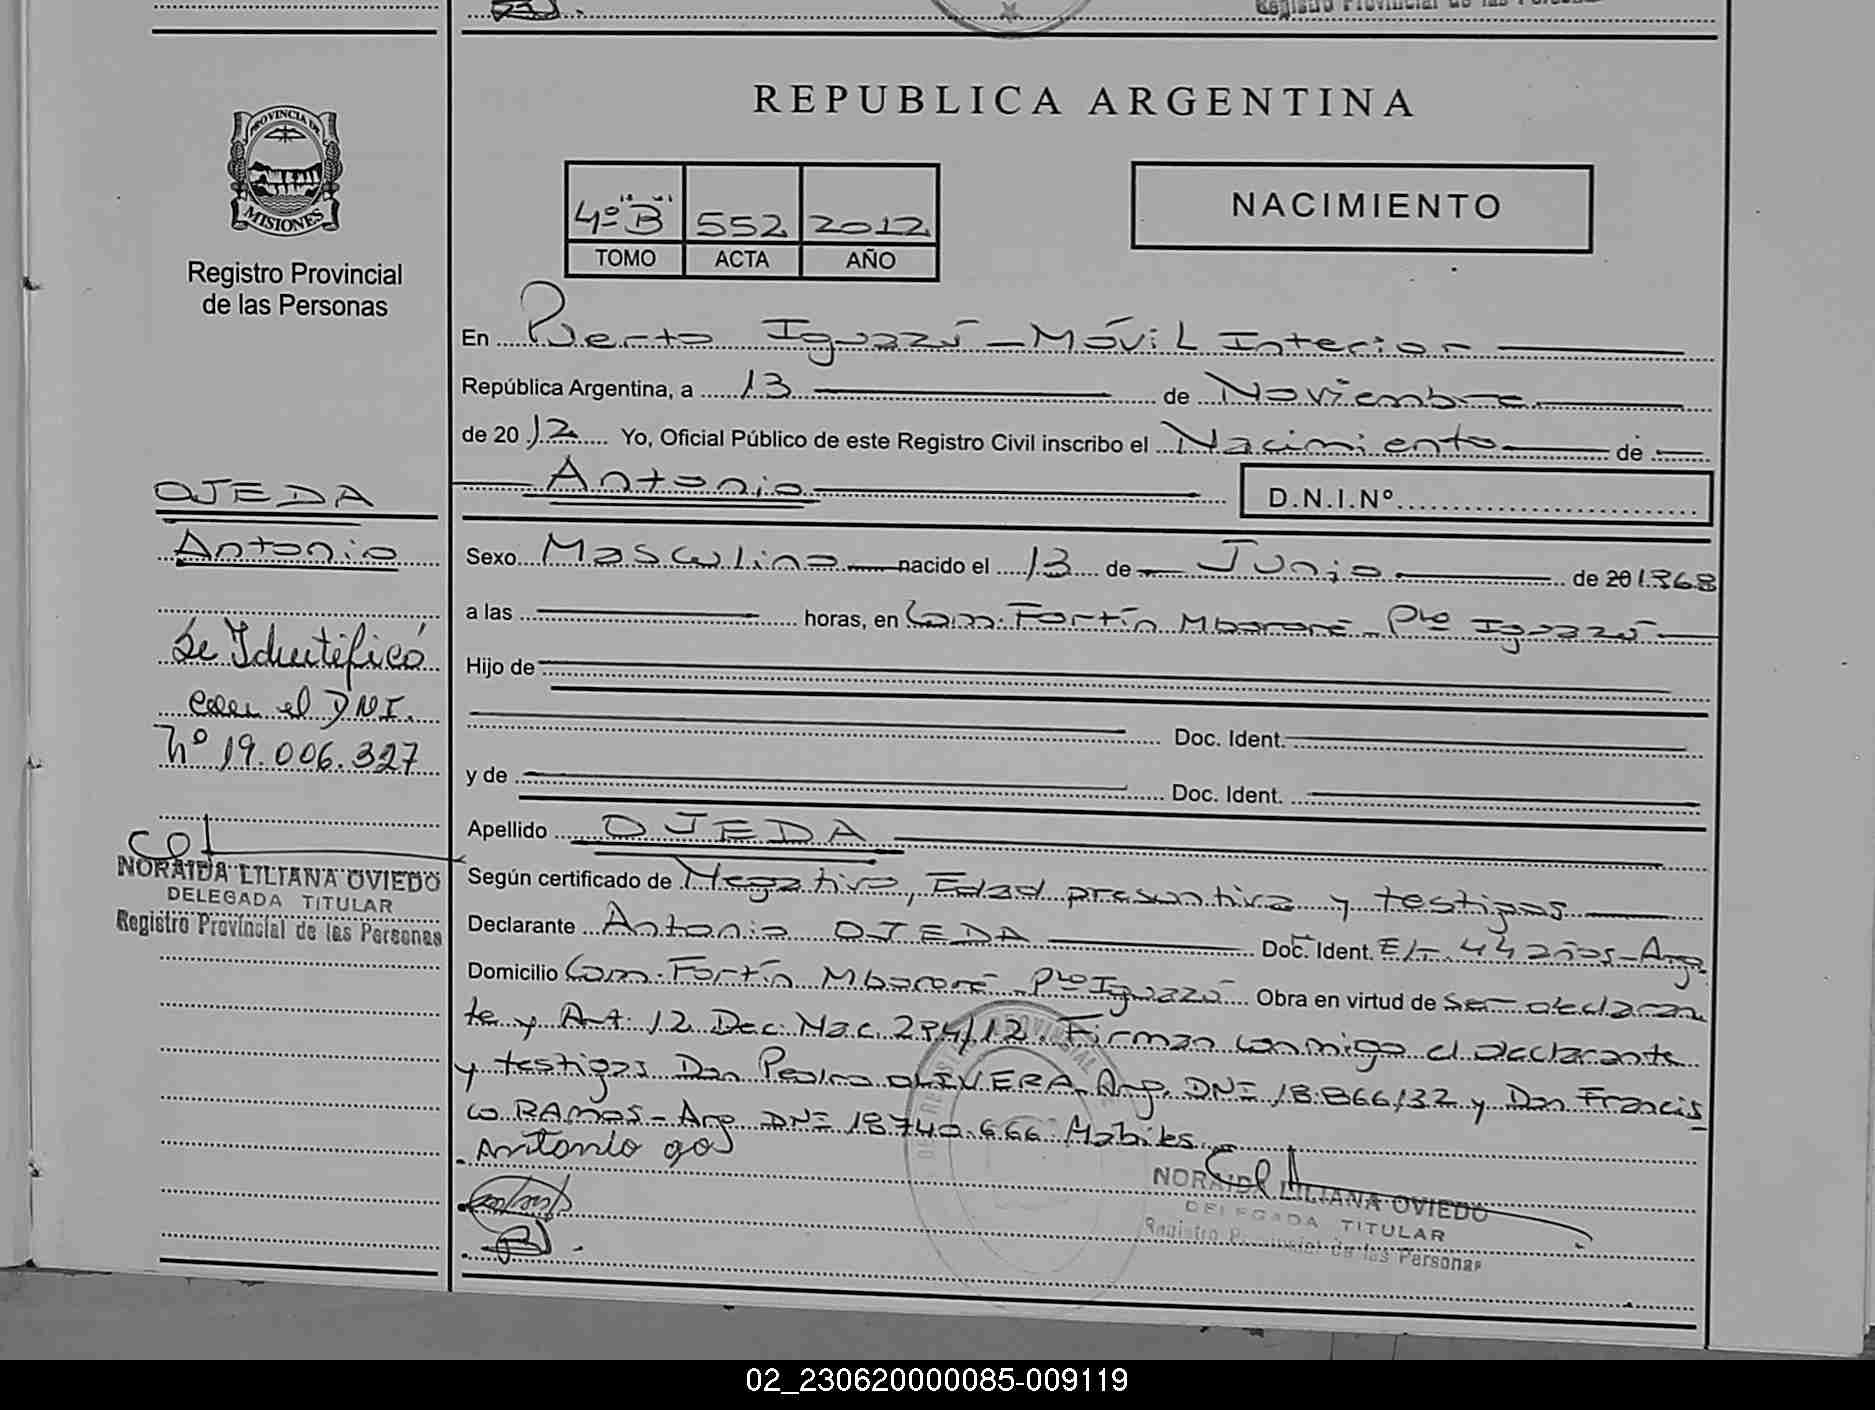 Registro Provincial de las Personas
REPUBLICA ARGENTINA
PROVINCIA DE
MISIONES
Registro Provincial
de las Personas
4º "B" 552 2012
TOMO ACTA AÑO
NACIMIENTO
En Puerto Iguazú - Móvil Interior
República Argentina, a 13 de Noviembre
de 2012 Yo, Oficial Público de este Registro Civil inscribo el Nacimiento de
Antonio D.N.I.Nº
Sexo Masculino nacido el 13 de Junio de 201968
a las horas, en Com. Fortín Mbororé Pto Iguazú
Hijo de
Doc. Ident.
y de Doc. Ident.
Apellido OJEDA
Según certificado de Negativo, Edad presuntiva y testigos
Declarante Antonio OJEDA Doc. Ident. E/T. 44 años - Arg.
Domicilio Com. Fortín Mbororé Pto Iguazú Obra en virtud de ser declaran
te y Art. 12 Dec. Nac. 294/12. Firman conmigo el declarante
y testigos Don Pedro OLIVERA Arg. DNI 18.866132 y Don Francis
co RAMOS - Arg. DNI 18740.666 Hábiles.
Antonio
NORAIDA LILIANA OVIEDO
DELEGADA TITULAR
Registro Provincial de las Personas
OJEDA
Antonio
Se Identificó
con el DNI.
Nº 19.006.327
NORAIDA LILIANA OVIEDO
DELEGADA TITULAR
Registro Provincial de las Personas
02_230620000085-009119